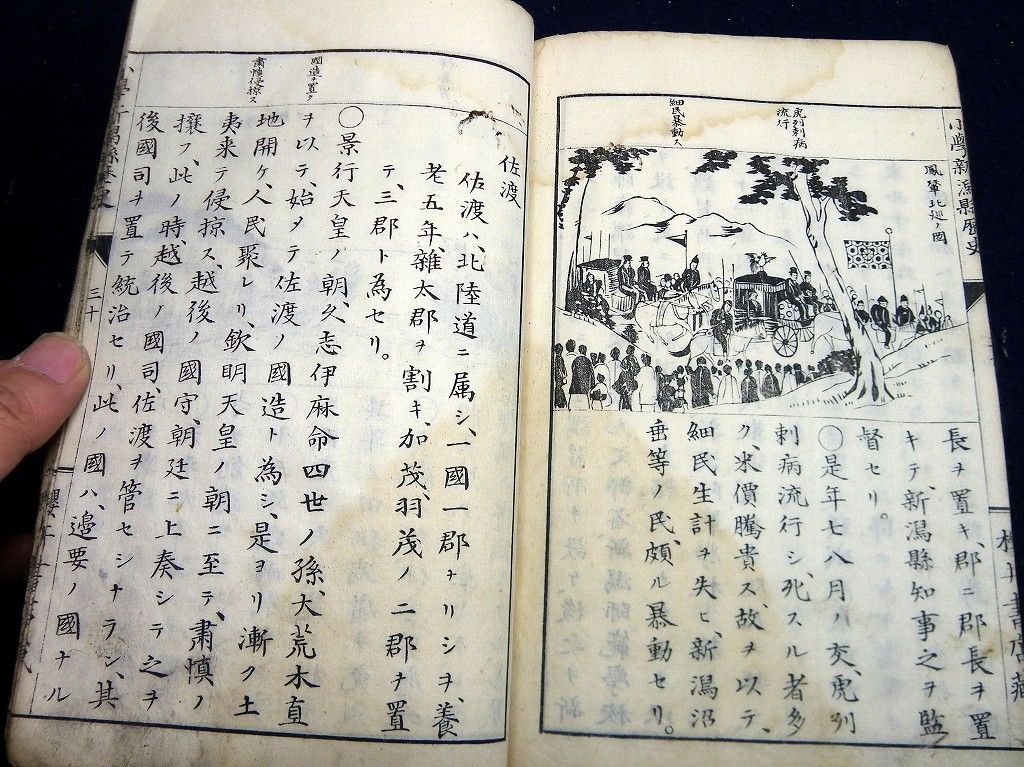 小學新潟縣歴史
鳳輦北巡ノ圖
虎列剌病
流行
細民暴動ス
長ヲ置キ、郡ニ郡長ヲ置
キテ、新潟縣知事之ヲ監
督セリ。
〇是年七八月ノ交、虎列
剌病流行シ、死スル者多
ク、米價騰貴ス、故ヲ以テ、
細民生計ヲ失ヒ、新潟沼
垂等ノ民、頗ル暴動セリ。
佐渡
佐渡ハ、北陸道ニ属シ、一國一郡ナリシヲ、養
老五年、雜太郡ヲ割キ、加茂、羽茂ノ二郡ヲ置
テ、三郡ト為セリ。
國造ヲ置ク
〇景行天皇ノ朝、久志伊麻命四世ノ孫、大荒木直
ヲ以テ、始メテ佐渡ノ國造ト為シ、是ヨリ漸ク土
肅慎侵掠ス
地開ケ、人民聚レリ、欽明天皇ノ朝ニ至テ、肅慎ノ
夷来テ侵掠ス、越後ノ國守、朝廷ニ上奏シテ之ヲ
攘フ、此ノ時、越後ノ國司、佐渡ヲ管セシナラン、其
後國司ヲ置テ統治セリ、此ノ國ハ、邊要ノ國ナル
三十